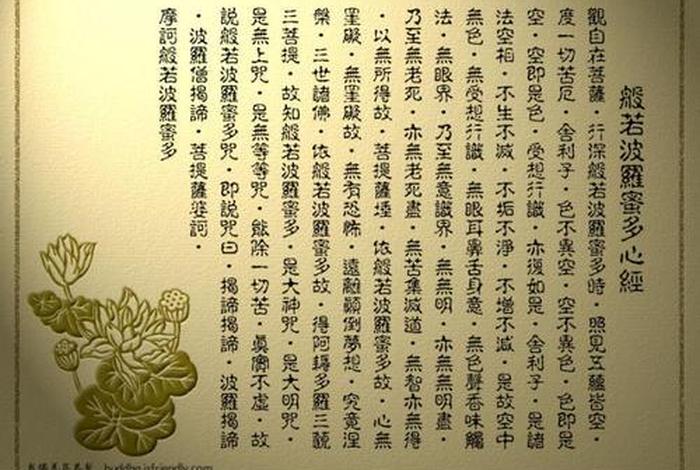 般若波羅蜜多心經
觀自在菩薩・行深般若波羅蜜多時・照見五蘊皆空・
度一切苦厄・舍利子・色不異空・空不異色・色即是
空・空即是色・受想行識・亦復如是・舍利子・是諸
法空相・不生不滅・不垢不淨・不增不減・是故空中
無色・無受想行識・無眼耳鼻舌身意・無色聲香味觸
法・無眼界・乃至無意識界・無無明・亦無無明盡・
乃至無老死・亦無老死盡・無苦集滅道・無智亦無得
・以無所得故・菩提薩埵・依般若波羅蜜多故・心無
罣礙・無罣礙故・無有恐怖・遠離顛倒夢想・究竟涅
槃・三世諸佛・依般若波羅蜜多故・得阿耨多羅三藐
三菩提・故知般若波羅蜜多・是大神咒・是大明咒・
是無上咒・是無等等咒・能除一切苦・真實不虛・故
說般若波羅蜜多咒・即說咒曰・揭諦揭諦・波羅揭諦
・波羅僧揭諦・菩提薩婆訶・
摩訶般若波羅蜜多
buddha.isfriendly.com